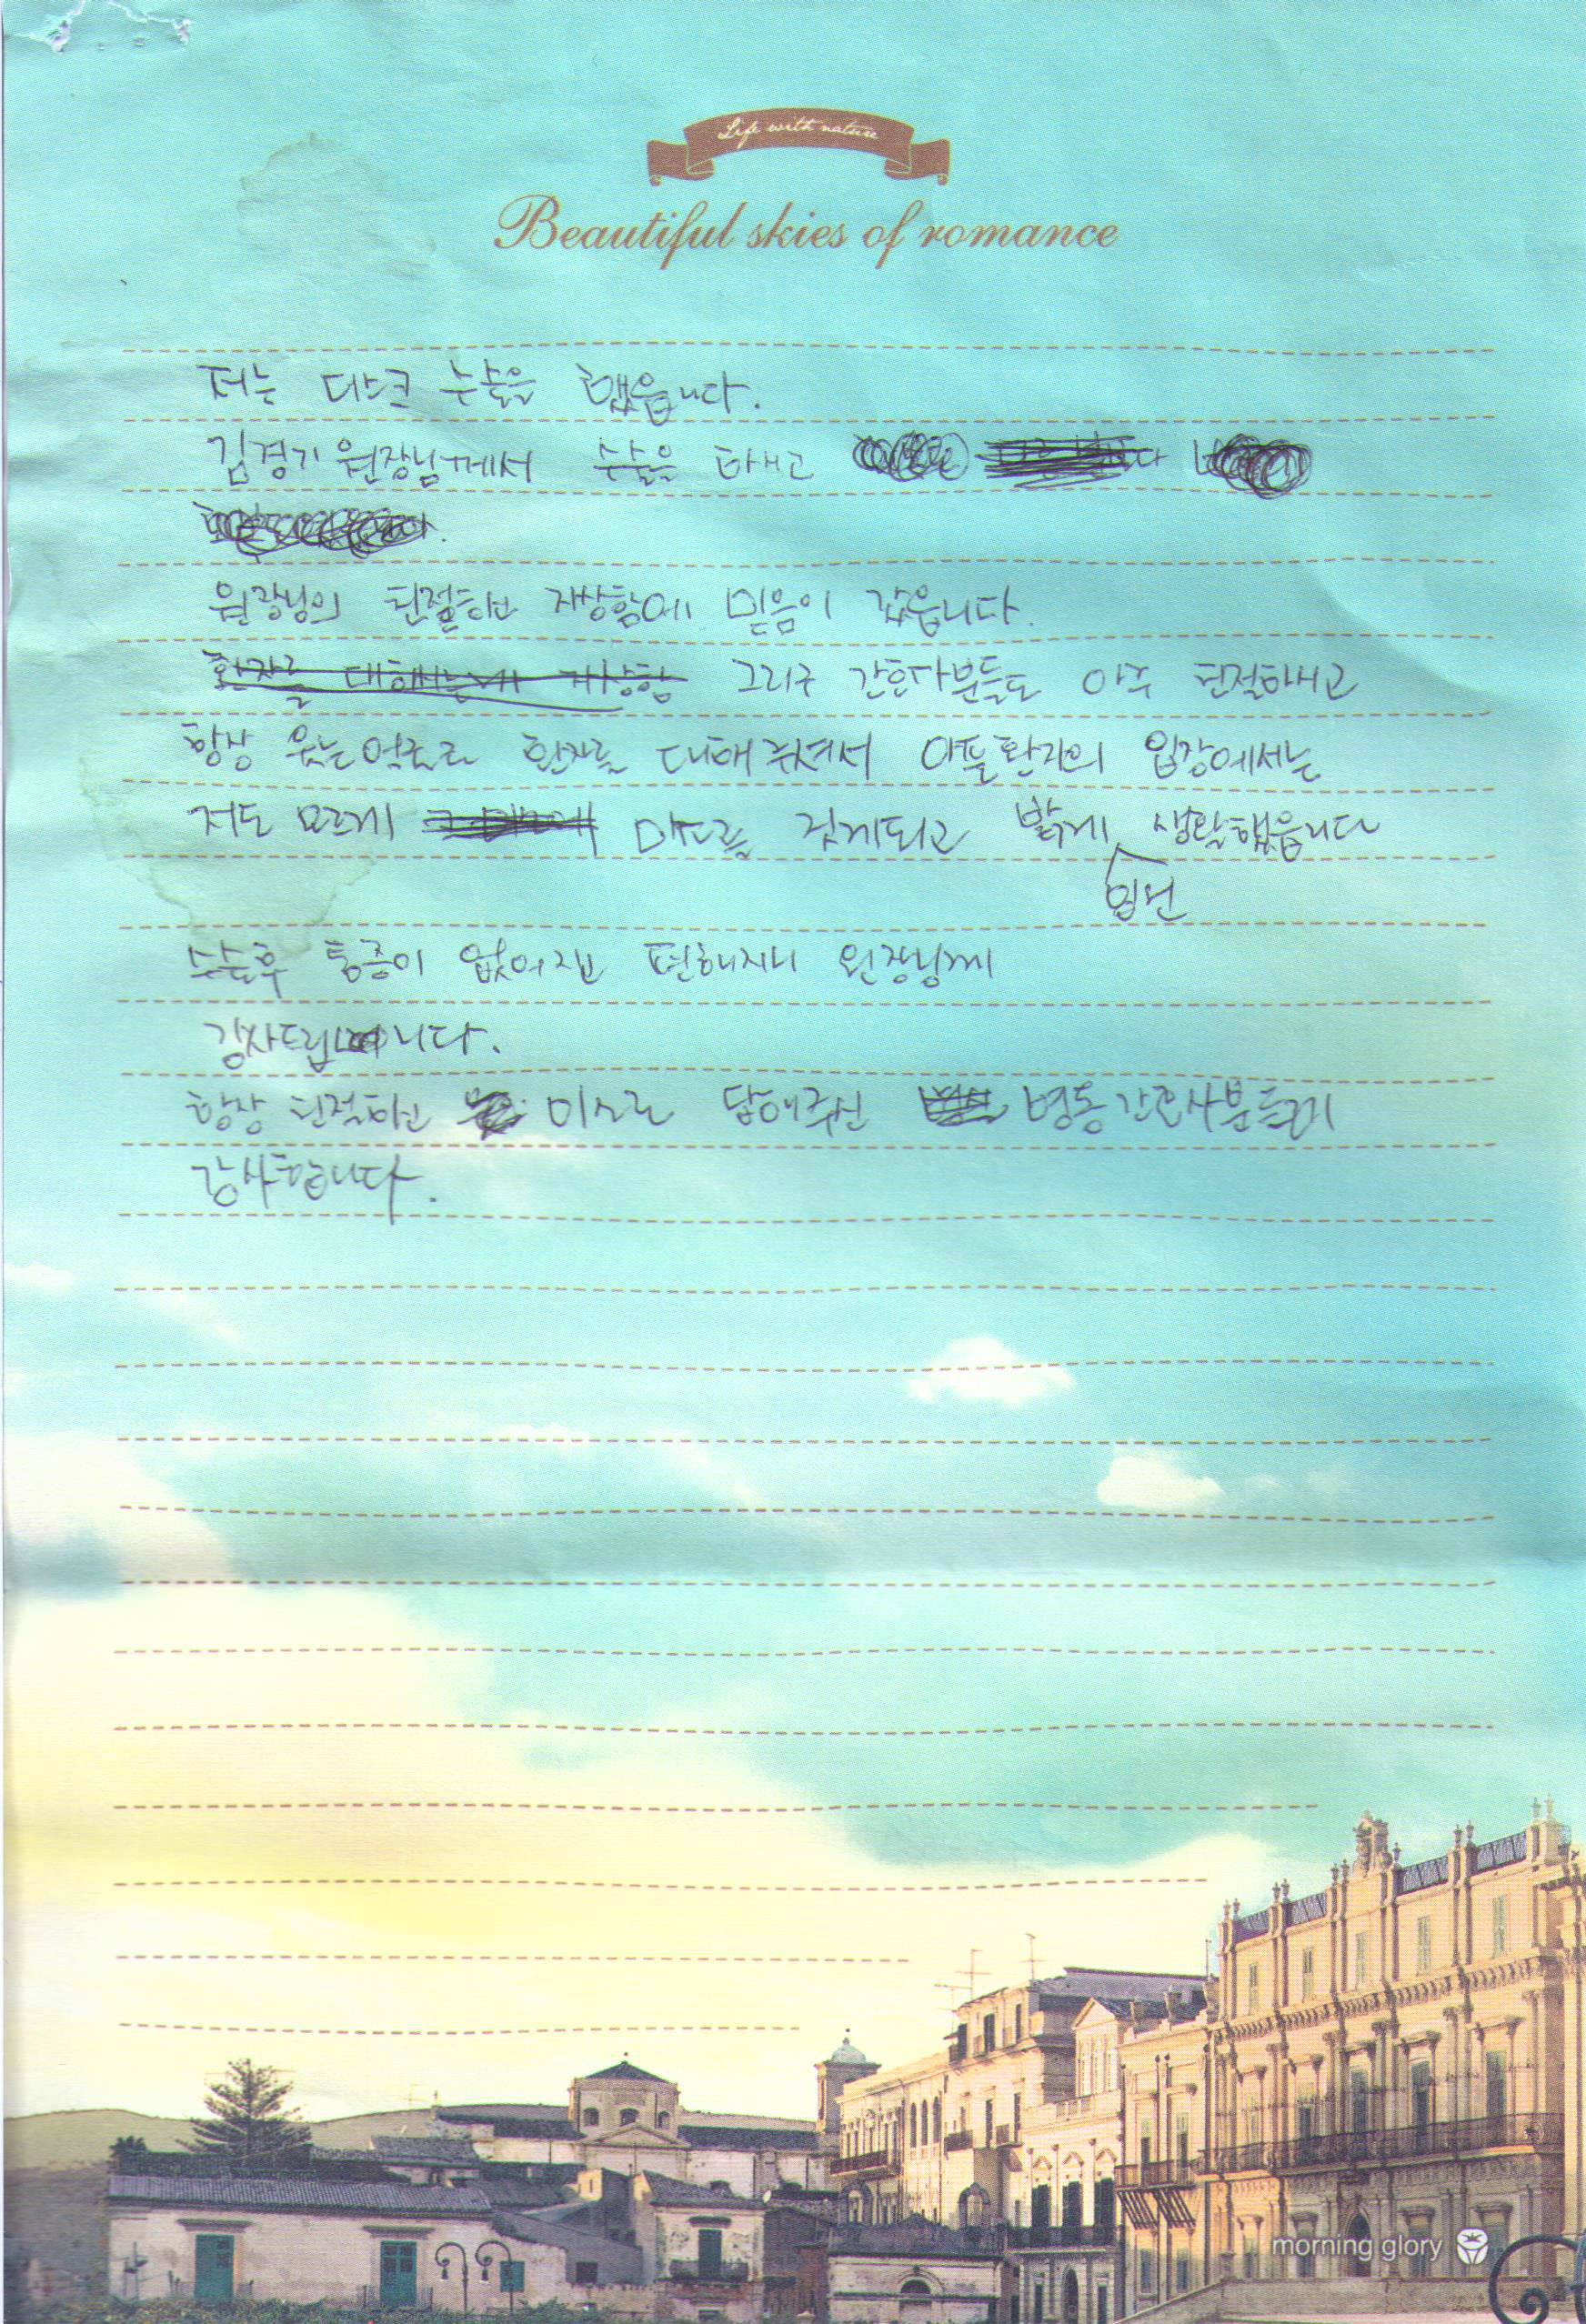 Life with nature
Beautiful skies of romance
저는 디스크 수술을 했읍니다.
김경기 원장님께서 수술을 하시고
원장님의 친절하고 자상함에 믿음이 갔읍니다.
환자를 대해서는데 자상함 그리구 간호사분들도 아주 친절하시고
항상 웃는얼굴로 환자를 대해주셔서 아픈환자의 입장에서는
저도 모르게 미소를 짓게되고 밝게 생활했읍니다
입원
수술후 통증이 없어지고 편해지니 원장님께
감사드립니다.
항상 친절하고 미소로 답해주신 병동간호사분들께
감사합니다.
morning glory